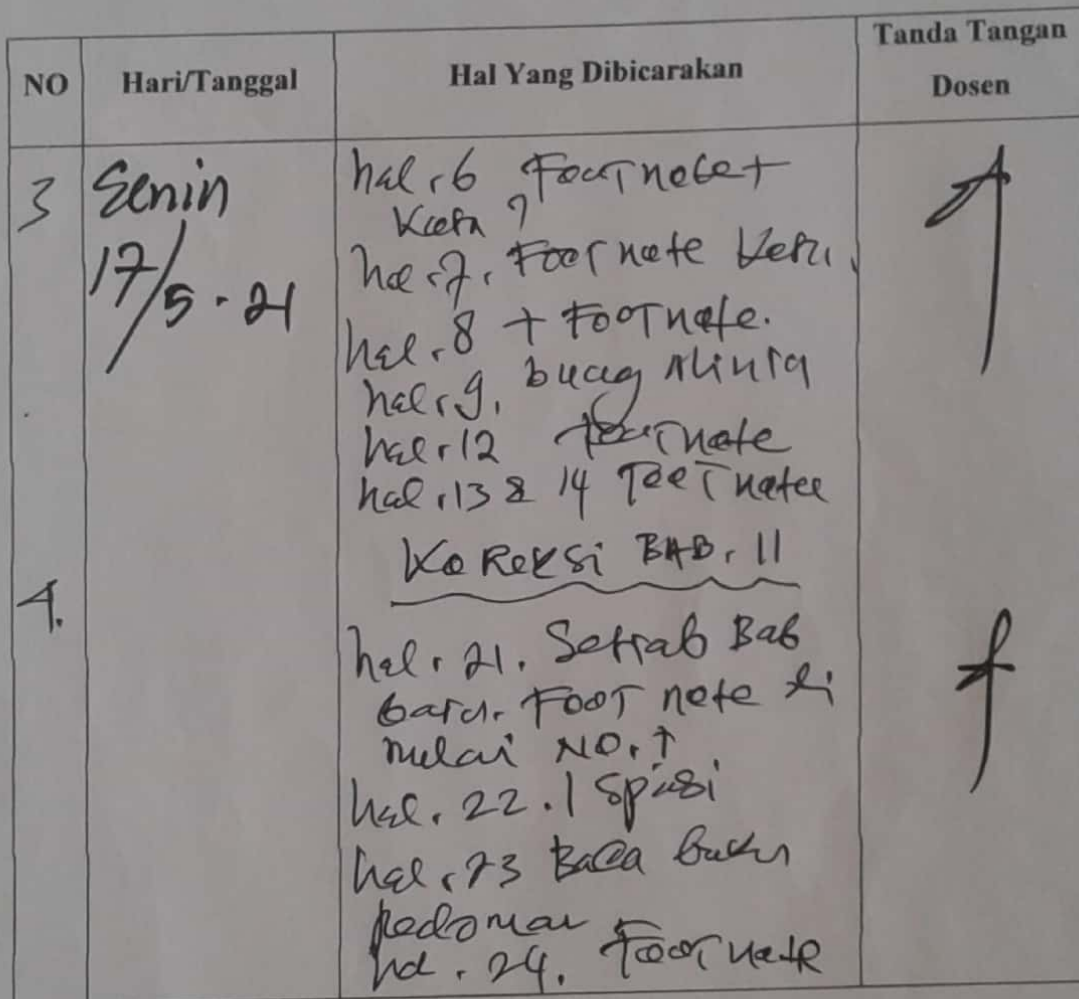 NO Hari/Tanggal Hal Yang Dibicarakan Tanda Tangan Dosen
3 Senin
17/5.21
hal. 6 Footnote +
hal. 7. Footnote
hal. 8 + Footnote.
hal. 9.
hal. 12 footnote
hal. 13 & 14 Footnote
Koreksi BAB. II
4.
hal. 21. Setiab Bab
baru. Foot note di
mulai NO. 1
hal. 22. 1 Spasi
hal. 23 Baca buku
pedoman
hal. 24. Footnote